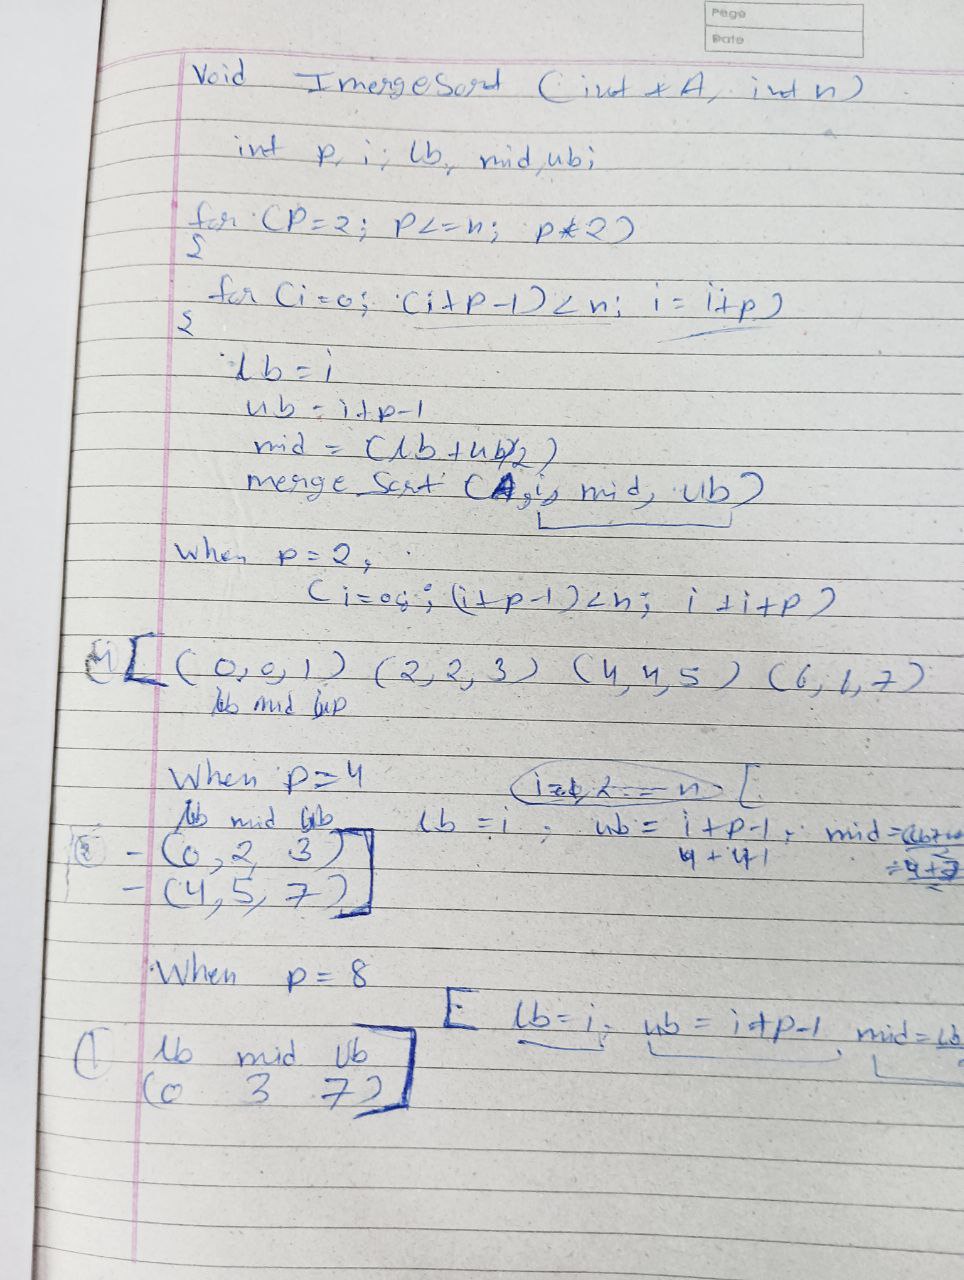 Page
Date
Void ImergeSort (int *A, int n)
int p, i, lb, mid, ub;
for (P=2; P<=n; p*2)
{
for (i=0; (i+p-1)<n; i=i+p)
{
lb=i
ub=i+p-1
mid = (lb+ub/2)
merge Sort (A, i, mid, ub)
When p=2,
(i=0; (i+p-1)<n; i+i+p)
4 [ (0,0,1) (2,2,3) (4,4,5) (6,6,7)
lb mid up
When p=4
lb mid ub lb=i, ub = i+p-1, mid=
2 - (0,2,3) 4+4-1
- (4,5,7) ]
When p=8
[ lb=i, ub=i+p-1, mid=lb
1 lb mid ub
(0 3 7) ]